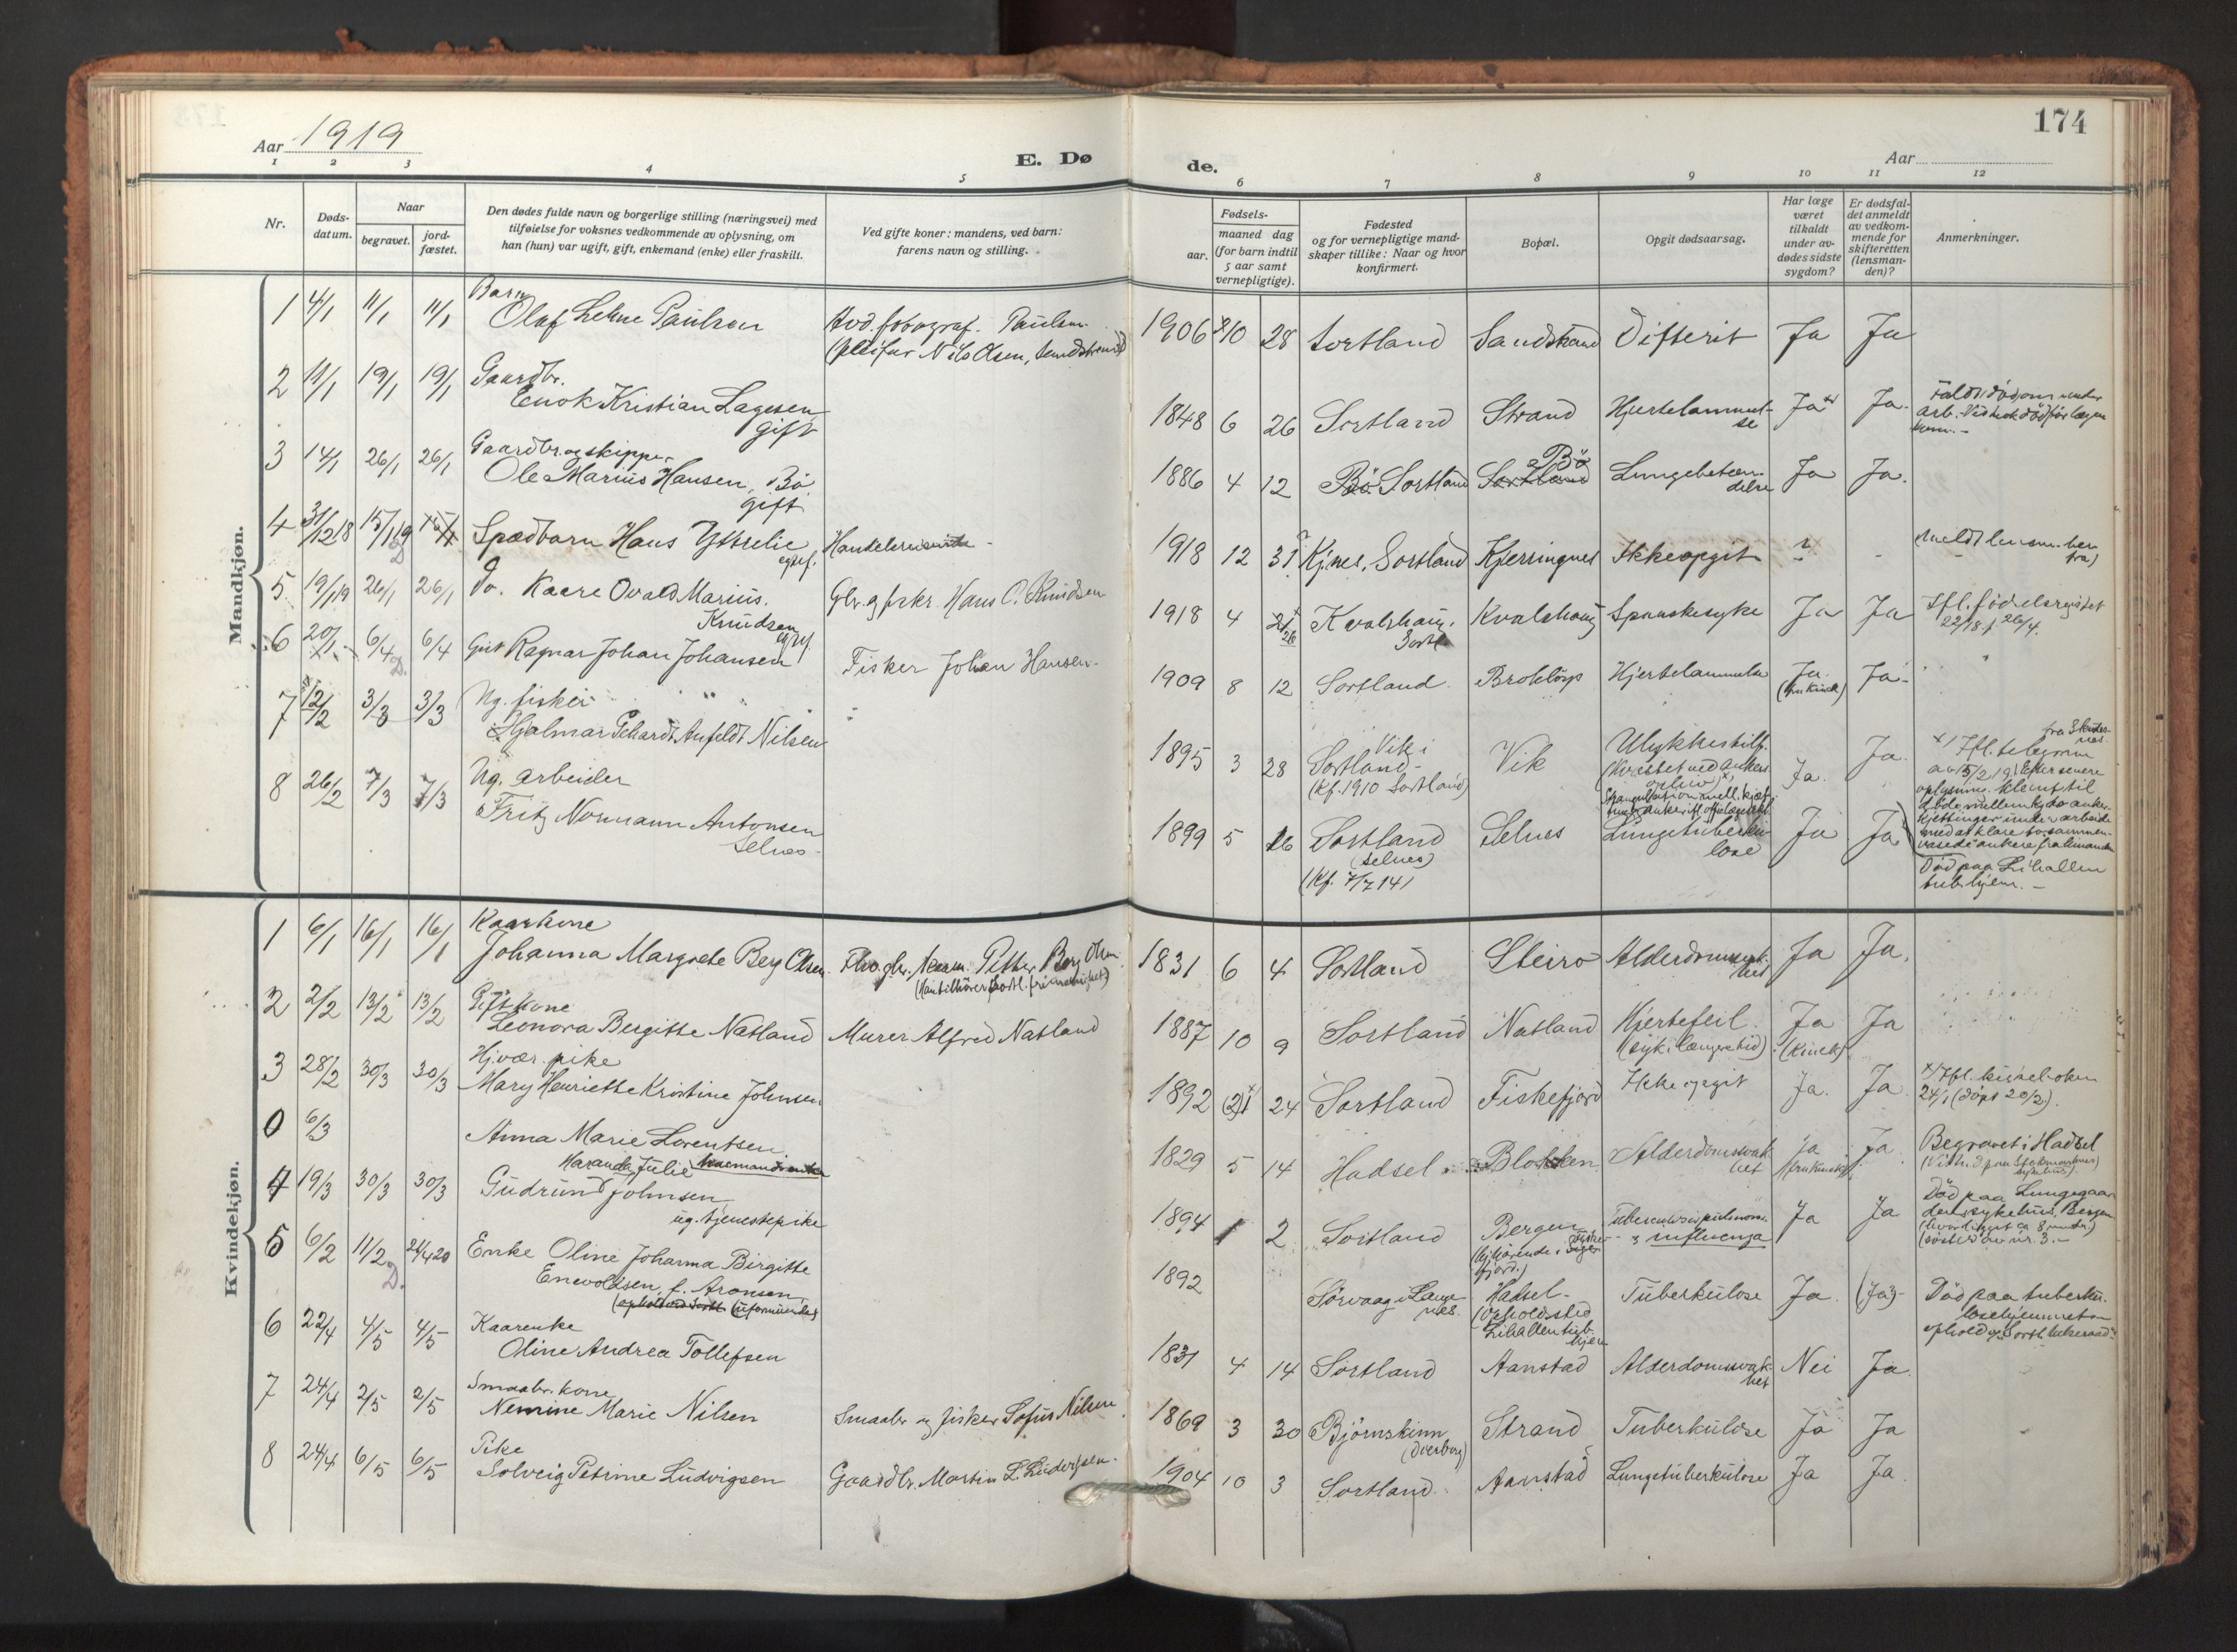 174
Aar 1919
E. Dø
de.
Aar
1 2 3 4 5 6 7 8 9 10 11 12
Nr.
Døds-
datum.
Naar
begravet.
jord-
fæstet.
Den dødes fulde navn og borgerlige stilling (næringsvei) med
tilføielse for voksnes vedkommende av oplysning, om
han (hun) var ugift, gift, enkemand (enke) eller fraskilt.
Ved gifte koner: mandens, ved barn:
farens navn og stilling.
Fødsels-
aar.
maaned dag
(for barn indtil
5 aar samt
vernepligtige).
Fødested
og for vernepligtige mand-
skaper tillike: Naar og hvor
konfirmert.
Bopæl.
Opgit dødsaarsag.
Har læge
været
tilkaldt
under av-
dødes sidste
sygdom?
Er dødsfal-
det anmeldt
av vedkom-
mende for
skifteretten
(lensman-
den)?
Anmerkninger.
Mandkjøn.
Barn
1 4/1 11/1 11/1 Olaf Lehne Paulsen Avd. fotograf. Paulsen
(pleifar Nils Olsen, Sandstrand)
1906 10 28 Sortland Sandstrand Difterit Ja Ja
2 11/1 19/1 19/1 Gaardbr.
Enok Kristian Lagesen
gift
1848 6 26 Sortland Strand Hjertelammel-
se Ja Ja.
3 14/1 26/1 26/1 Gaardbr. og skipper
Ole Marius Hansen, Bø
gift
1886 4 12 Bø Sortland Sortland Bø Lungebetæn-
delse Ja Ja.
4 31/12 18 15/1 19 Spædbarn Hans Yttrelie
egtef. Handelsreisende
1918 12 31 Kjnes, Sortland Kjerringnes Ikke opgit ?
5 19/1 19 26/1 26/1 Do. Kaare Ovald Marius.
Knudsen
egtef. Gbr. og fisker. Hans C. Knudsen
1918 4 21 26 Kvalshaug.
Sortl Kvalshaug Spanskesyke Ja Ja Ifl. fødselsregistet
22/18 f. 26/4.
6 20/1 6/4 6/4 Gut Ragnar Johan Johansen Fisker Johan Hansen
1909 8 12 Sortland Brokløys Hjertelammelse Ja
(fru Kinck) Ja
7 12/2 3/3 3/3 Ug. fisker
Hjalmar Gehardt Anfeldt Nilsen
1895 3 28 Vik i
Sortland
(Kf. 1910 Sortland) Vik Ulykkestilf.
(Kvæstet ved ankers-
Ja. Ja.
Ifl. telegram
fra Skudes-
nes
av 15/2 19. Efter senere
oplysning klemt til
døde mellem to anker-
kjettinger under arbeide
med at klare to sammen-
8 26/2 7/3 7/3 Ug. arbeider
Fritz Normann Antonsen
Selnes
1899 5 16 Sortland
(Selnes)
(Kf. 7/7 14) Selnes Lungetuberku-
lose Ja Ja
Død paa Lihallen
tub. hjem.
Kvindekjøn.
1 6/1 16/1 16/1 Kaarkone
Johanna Margrete Berg Olsen Petter Berg Olsen
1831 6 4 Sortland Steiro Alderdomssvak-
het Ja Ja.
2 2/2 13/2 13/2 Gift kone
Leonora Bergitte Natland Murer Alfred Natland
1887 10 9 Sortland Natland Hjertefeil.
(syk i længere tid) Ja
(Kinck) Ja
3 28/2 30/3 30/3 Hj.vær. pike
Mary Henriette Kristine Johnsen
1892 (2) 1 24 Sortland Fiskefjord Ikke opgit Ja. Ja Ifl. kirkeboken
24/1 (døpt 20/2).
0 6/3 Anna Marie Lorentsen
1829 5 14 Hadsel Blokken Alderdomssvak-
het Ja
(fru Kinck) Ja. Begravet i Hadsel
4 19/3 30/3 30/3 Haranda Julie
Gudrund Johnsen
ug. tjenestepike
1894 1 2 Sortland Bergen Tuberculosis pulmon.
& influenza Ja Ja Død paa Lungegaar-
dens sykehus, Bergen
(hvor ligget ca 8 mndr.)
(søster av nr. 3.
5 6/2 11/2 24/4 20 Enke Oline Johanna Birgitte
Enevoldsen, f. Aronsen,
1892 Sørvaag i Lange-
nes. Hadsel
(Opholdssted
Lihallen tub.
hjem Tuberkulose Ja (Ja) Død paa tuberku-
losehjemmet
6 22/4 4/5 4/5 Kaarenke
Oline Andrea Tollefsen
1831 4 14 Sortland Aanstad Alderdomssvak-
het Nei Ja.
7 24/4 2/5 2/5 Smaabr. kone
Nemine Marie Nilsen Smaabr og fisker Sofus Nilsen
1869 3 30 Bjørnskinn
(Dverberg) Strand Tuberkulose Ja Ja
8 24/4 6/5 6/5 Pike
Solveig Petrine Ludvigsen Gaardbr. Martin L. Ludvigsen.
1904 10 3 Sortland Aanstad Lungetuberkulose Ja Ja.